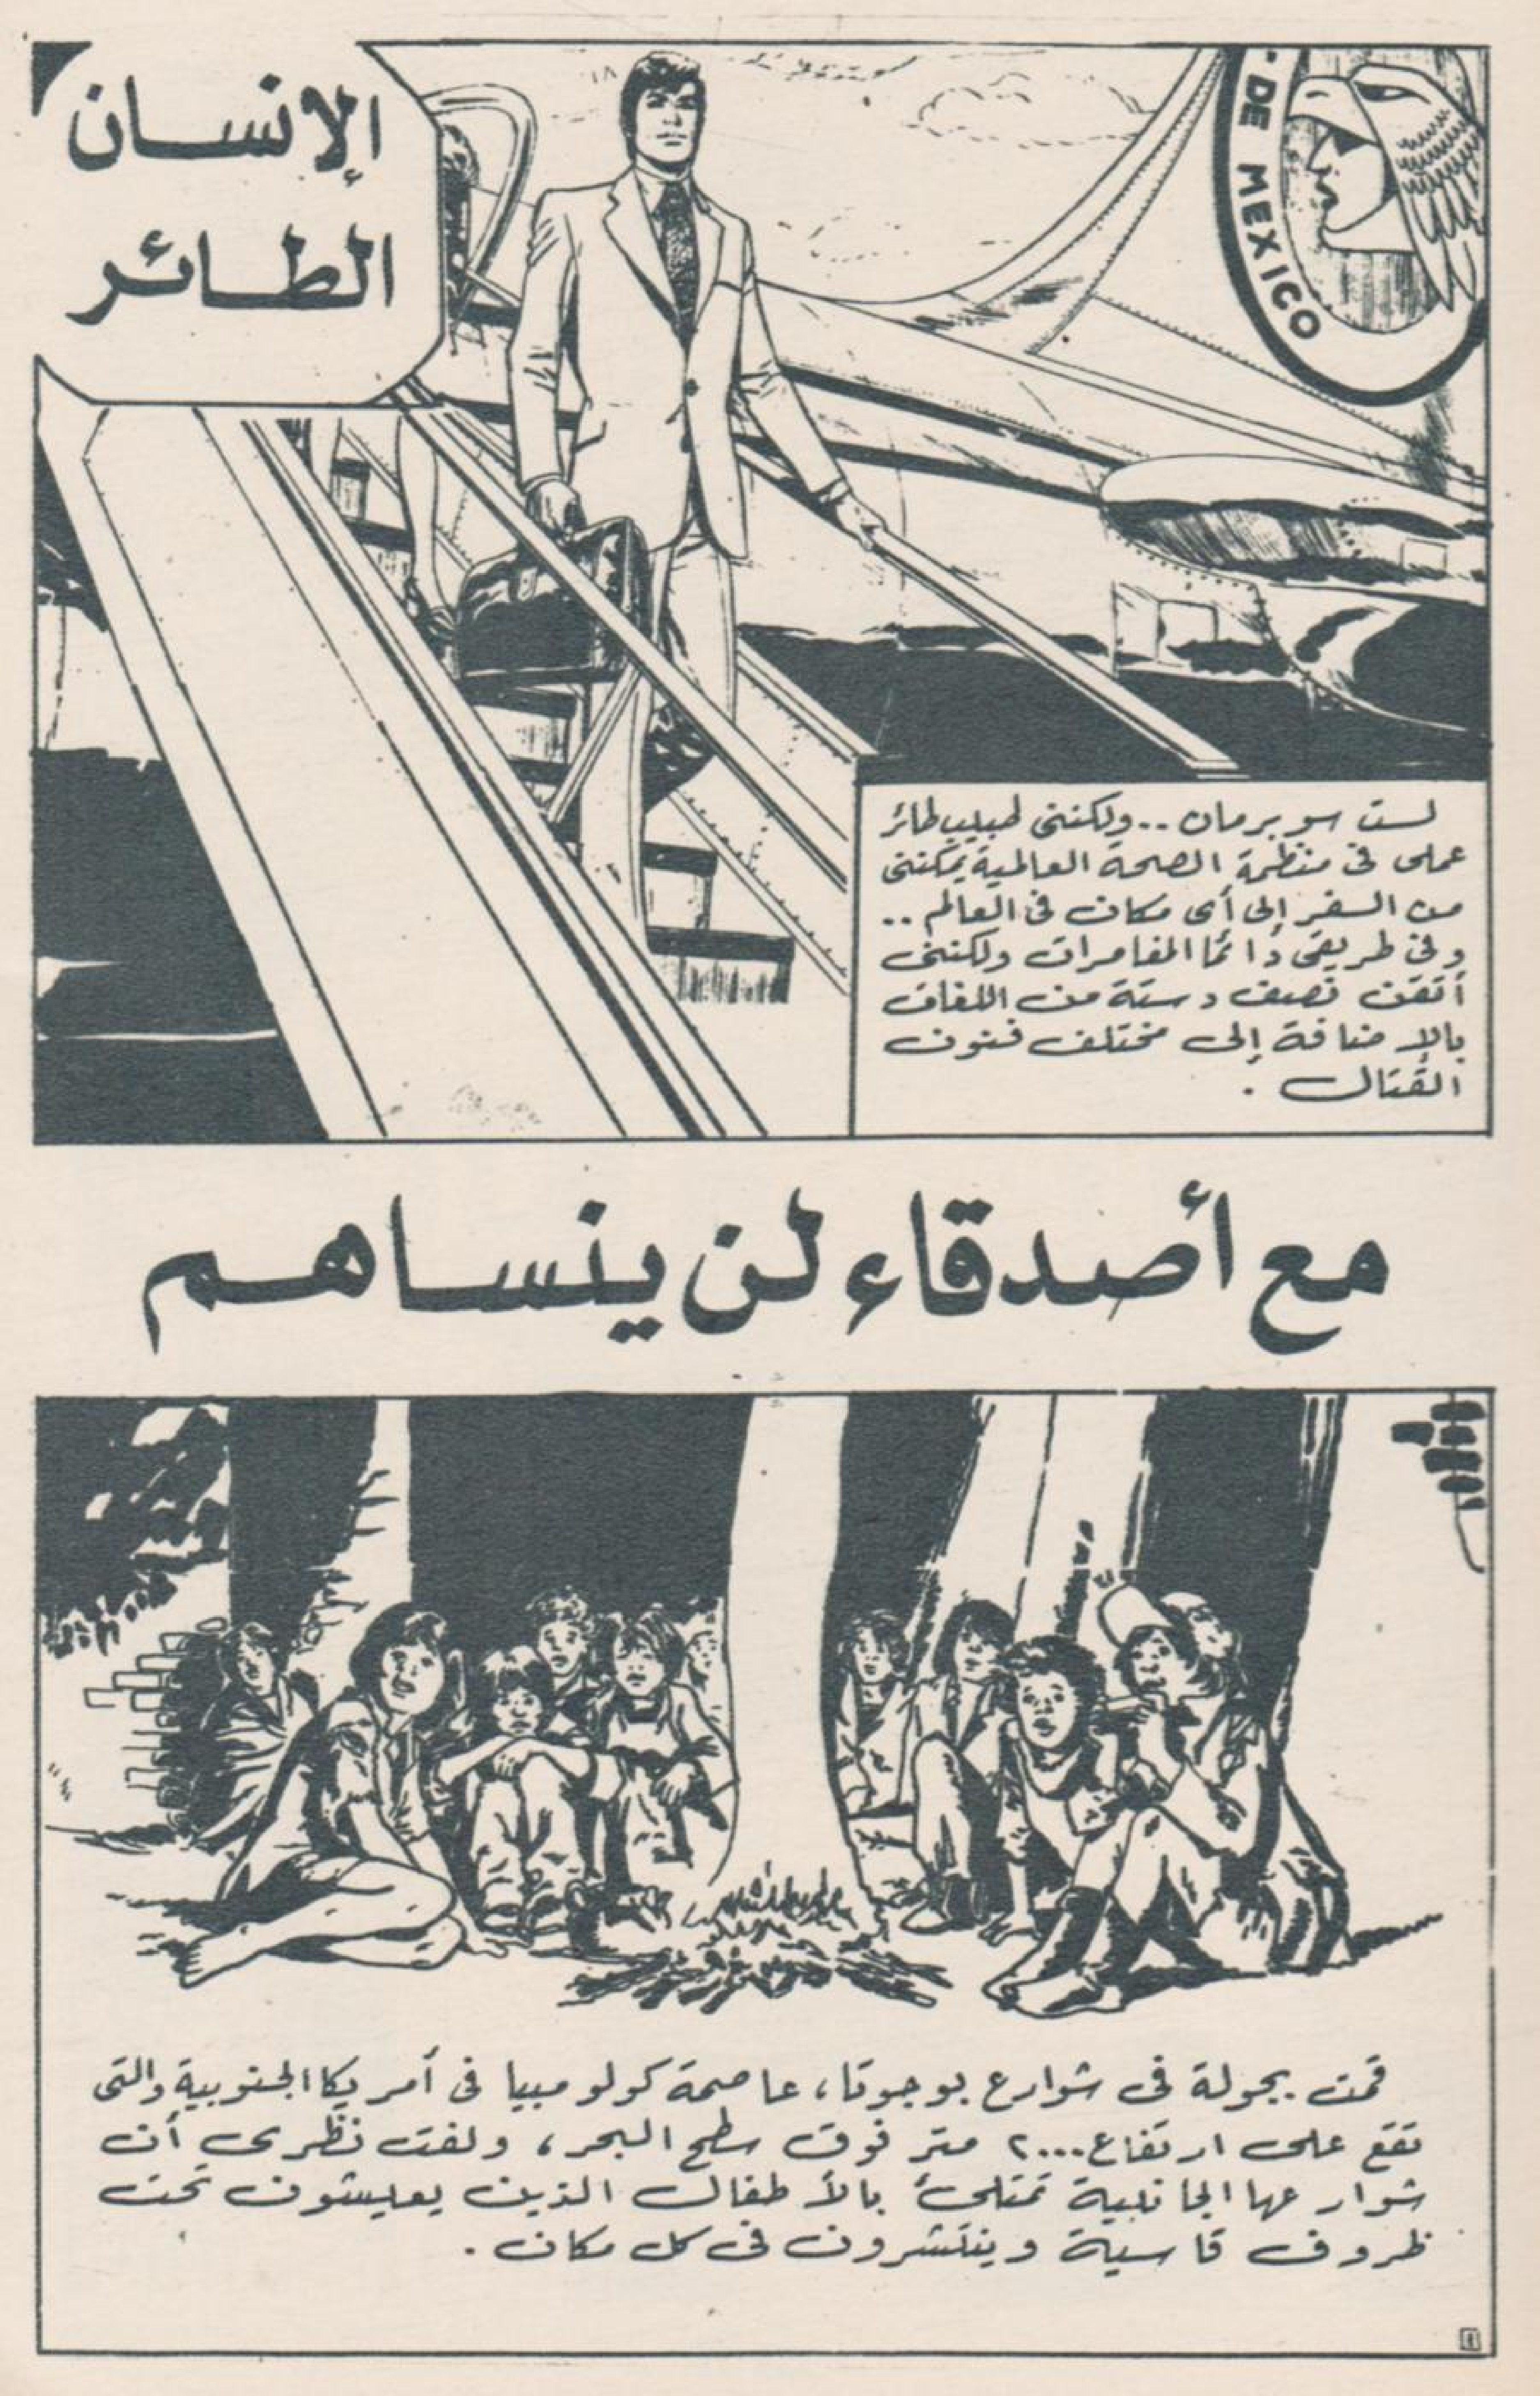 الإنسان
الطائر
- DE MEXICO
لست سوبرمان .. ولكننى طبيب طائر
عملى فى منظمة الصحة العالمية يمكننى
من السفر إلى أى مكان فى العالم ..
وفى طريقى دائما المغامرات ولكننى
أتقن نصف دستة من اللغات
بالإضافة إلى مختلف فنون
القتال .
مع أصدقاء لن ينساهم
قمت بجولة فى شوارع بوجوتا، عاصمة كولومبيا فى أمريكا الجنوبية والتى
تقع على ارتفاع ٢٠٠٠ متر فوق سطح البحر، ولفت نظرى أن
شوارعها الجانبية تمتلئ بالأطفال الذين يعيشون تحت
ظروف قاسية وينتشرون فى كل مكان .
١